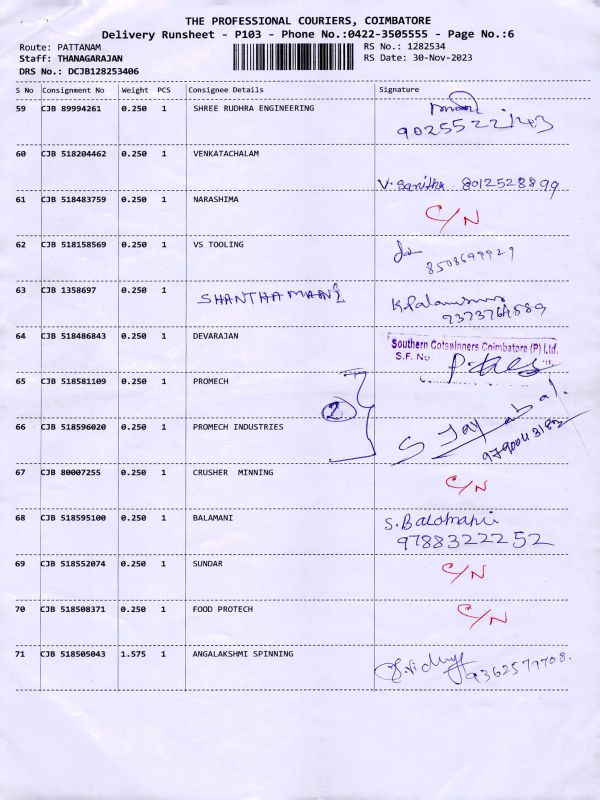 THE PROFESSIONAL COURIERS, COIMBATORE
Delivery Runsheet - P103 - Phone No.:0422-3505555 - Page No.:6
Route: PATTANAM RS No.: 1282534
Staff: THANAGARAJAN RS Date: 30-Nov-2023
DRS No.: DCJB128253406
S No Consignment No Weight PCS Consignee Details Signature
59 CJB 89994261 0.250 1 SHREE RUDHRA ENGINEERING
60 CJB 518204462 0.250 1 VENKATACHALAM
V. Sanitha 8012528899
61 CJB 518483759 0.250 1 NARASHIMA C/N
62 CJB 518158569 0.250 1 VS TOOLING
8508699929
63 CJB 1358697 0.250 1 SHANTHAMANI
9373764589
64 CJB 518486843 0.250 1 DEVARAJAN
Southern Cotspinners Coimbatore (P) Ltd.
S.F. No
65 CJB 518581109 0.250 1 PROMECH
2
66 CJB 518596020 0.250 1 PROMECH INDUSTRIES S Jayabal.
9790043182
67 CJB 80007255 0.250 1 CRUSHER MINNING C/N
68 CJB 518595100 0.250 1 BALAMANI S. Balamani
9788322252
69 CJB 518552074 0.250 1 SUNDAR C/N
70 CJB 518508371 0.250 1 FOOD PROTECH C/N
71 CJB 518505043 1.575 1 ANGALAKSHMI SPINNING
9362577708.